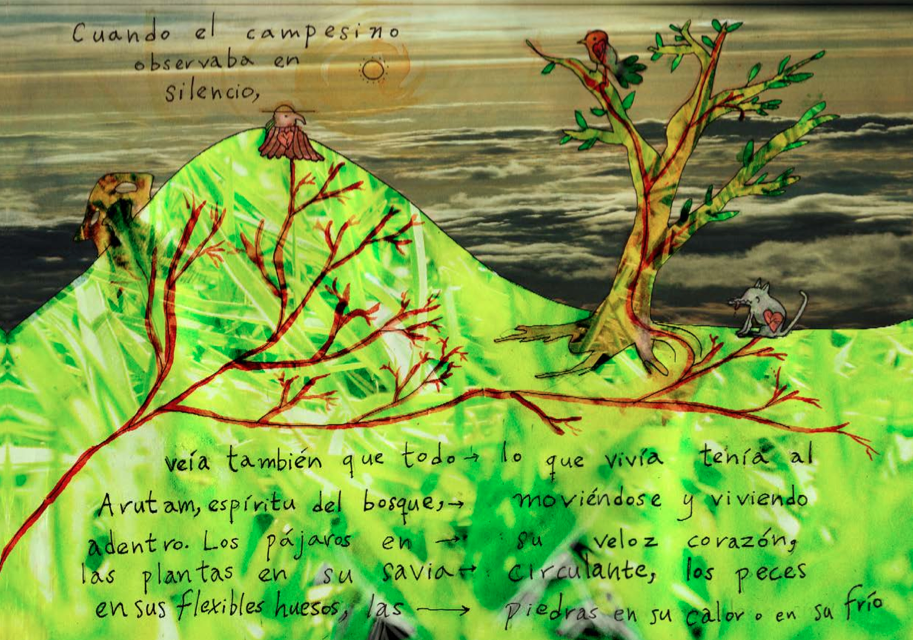 Cuando el campesino
observaba en
silencio,
veía también que todo → lo que vivía tenía al
Arutam, espíritu del bosque, → moviéndose y viviendo
adentro. Los pájaros en → su veloz corazón,
las plantas en su savia → circulante, los peces
en sus flexibles huesos, las → piedras en su calor o en su frío